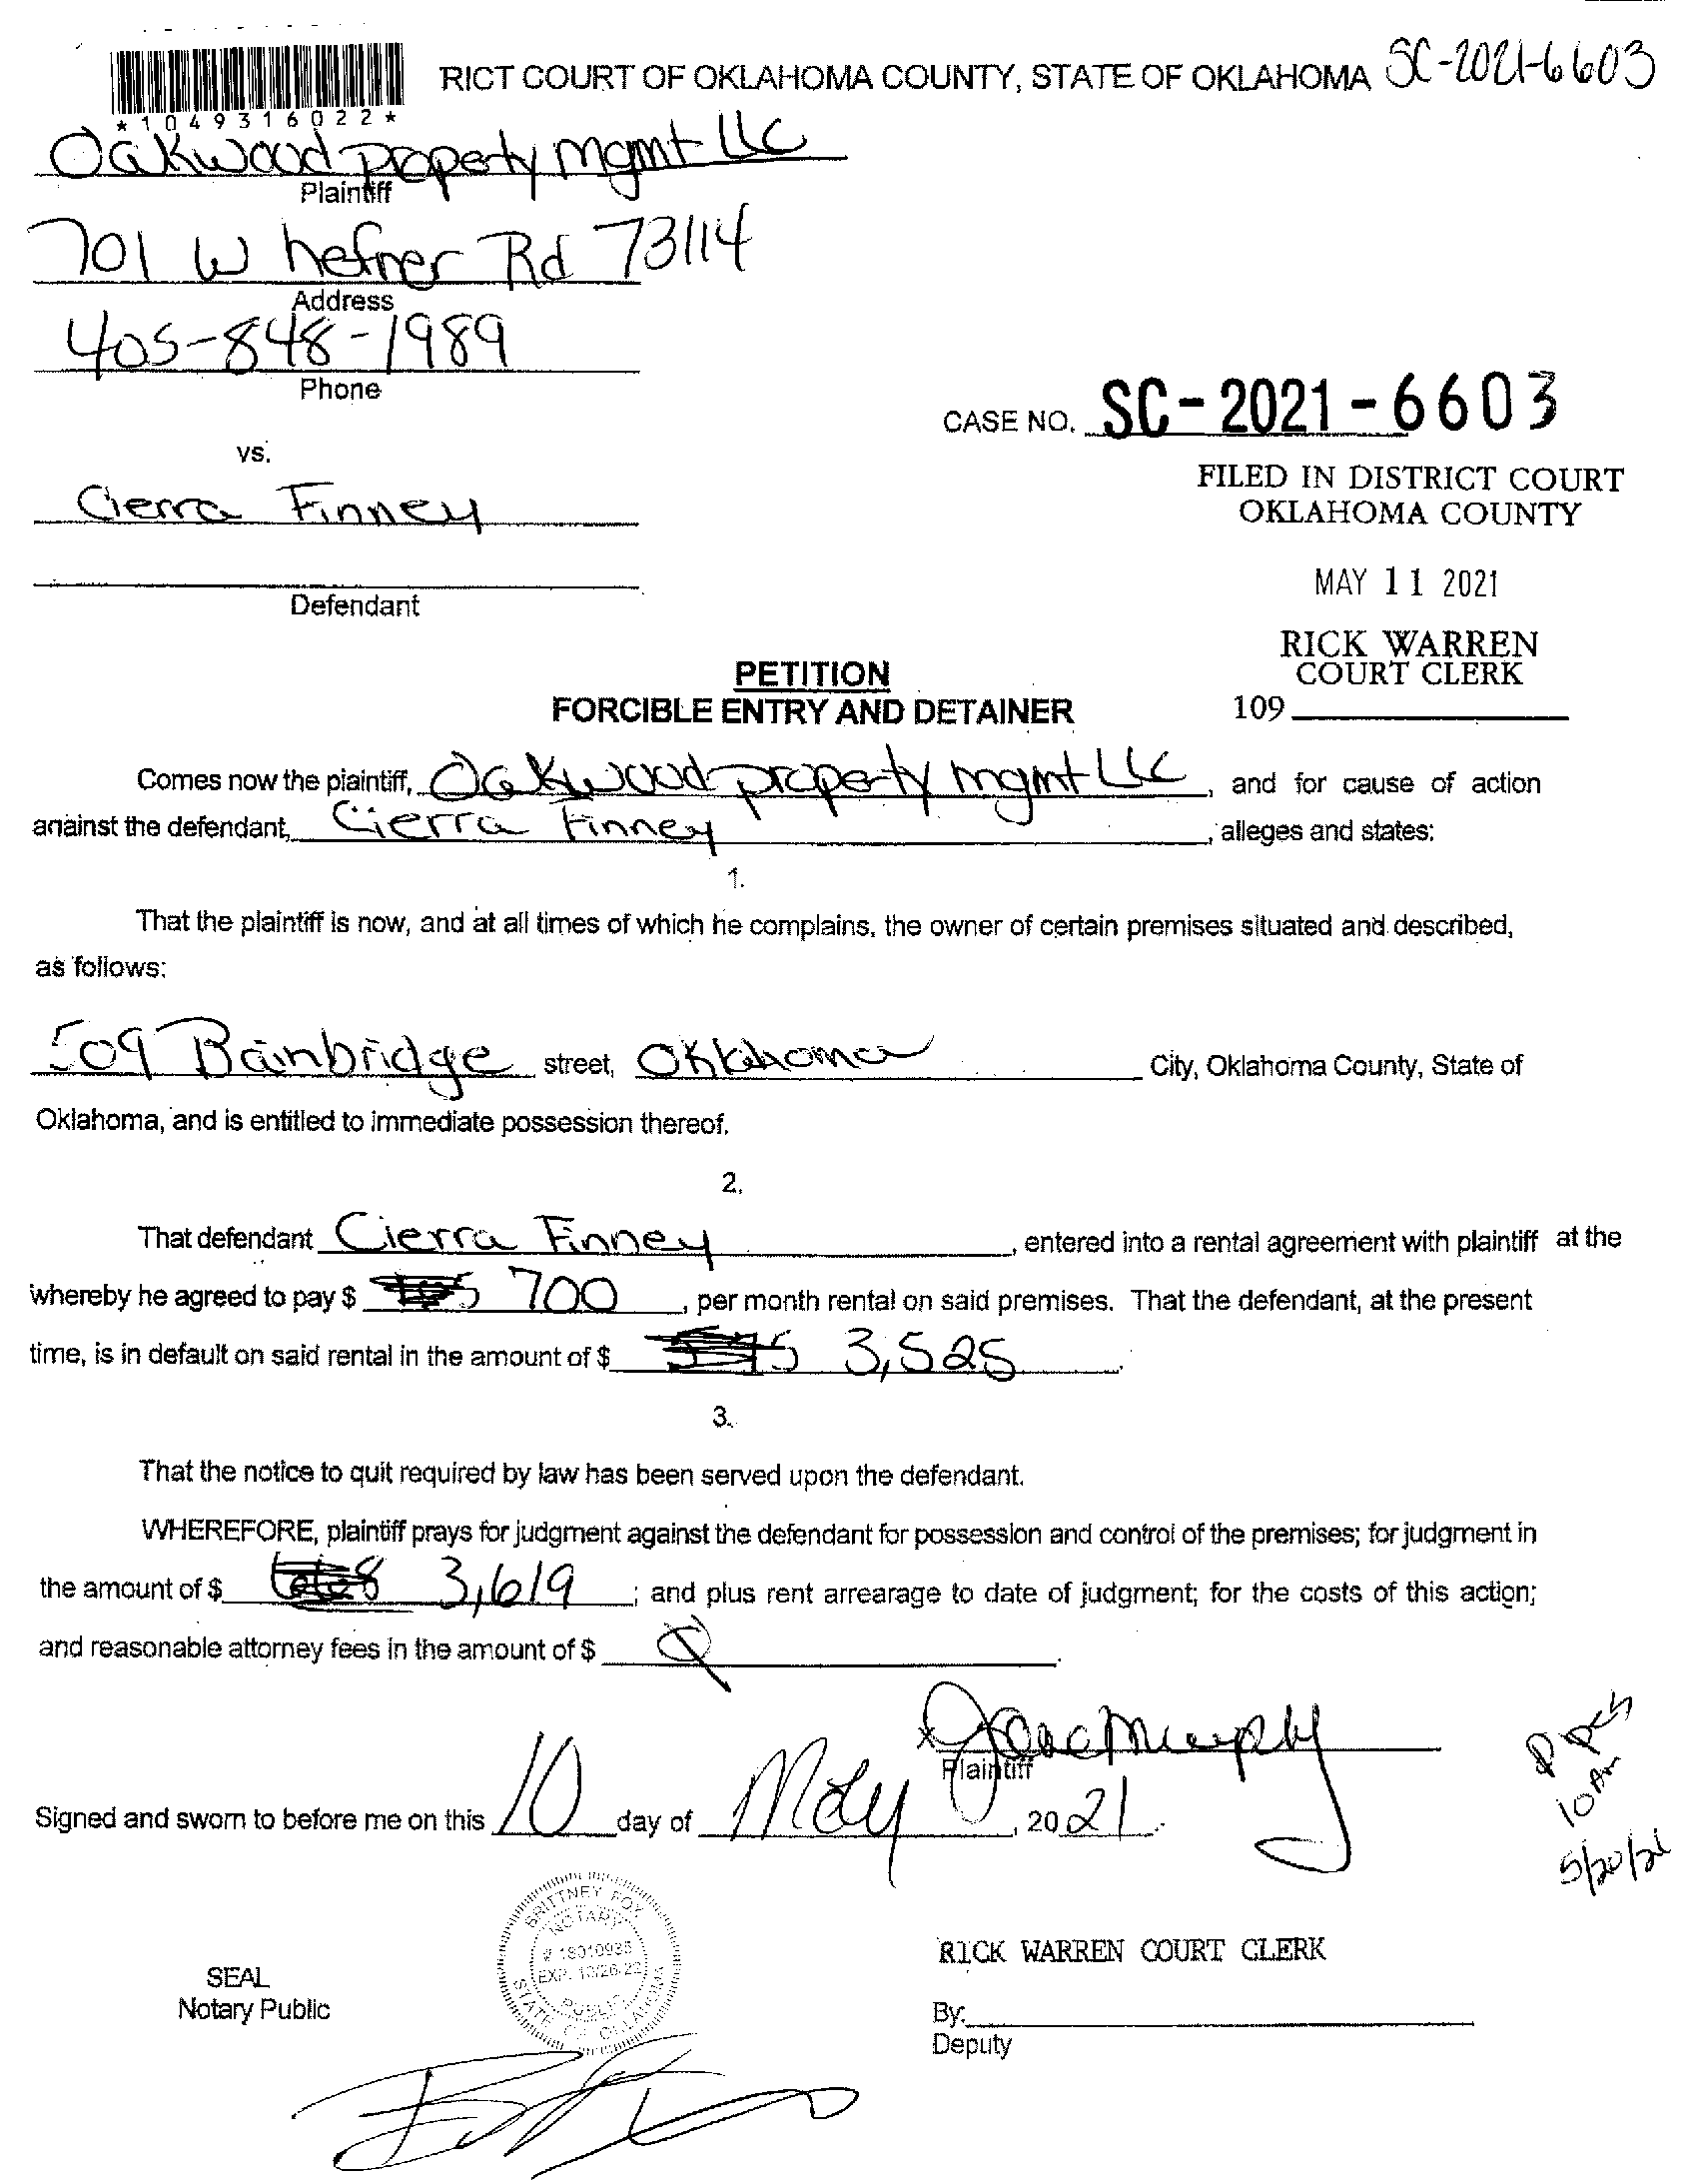 RICT COURT OF OKLAHOMA COUNTY, STATE OF OKLAHOMA SC-2021-6603
*1049316022*
Oakwood property mgmt LLC
Plaintiff
701 W hefner Rd 73114
Address
405-848-1989
Phone
CASE NO. SC-2021-6603
vs.
FILED IN DISTRICT COURT
OKLAHOMA COUNTY
Cierra Finney
MAY 11 2021
Defendant
RICK WARREN
COURT CLERK
109
PETITION
FORCIBLE ENTRY AND DETAINER
Comes now the plaintiff, Oakwood property mgmt LLC, and for cause of action
against the defendant, Cierra Finney, alleges and states:
1.
That the plaintiff is now, and at all times of which he complains, the owner of certain premises situated and described,
as follows:
509 Bainbridge street, Oklahoma City, Oklahoma County, State of
Oklahoma, and is entitled to immediate possession thereof.
2.
That defendant Cierra Finney, entered into a rental agreement with plaintiff at the
whereby he agreed to pay $ 700, per month rental on said premises. That the defendant, at the present
time, is in default on said rental in the amount of $ 3,525.
3.
That the notice to quit required by law has been served upon the defendant.
WHEREFORE, plaintiff prays for judgment against the defendant for possession and control of the premises; for judgment in
the amount of $ 3,619; and plus rent arrearage to date of judgment; for the costs of this action;
and reasonable attorney fees in the amount of $
Plaintiff
Signed and sworn to before me on this 10 day of May, 2021.
10 Am
5/20/21
BRITTNEY FOX
NOTARY
# 18010935
EXP. 10/26/22
PUBLIC
STATE OF OKLAHOMA
SEAL
Notary Public
RICK WARREN COURT CLERK
By:
Deputy